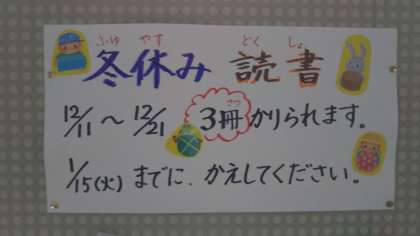 ふゆ やす とく しょ
冬休み 読書
12/11～12/21 3冊かりられます。
さつ
1/15(火)までに、かえしてください。